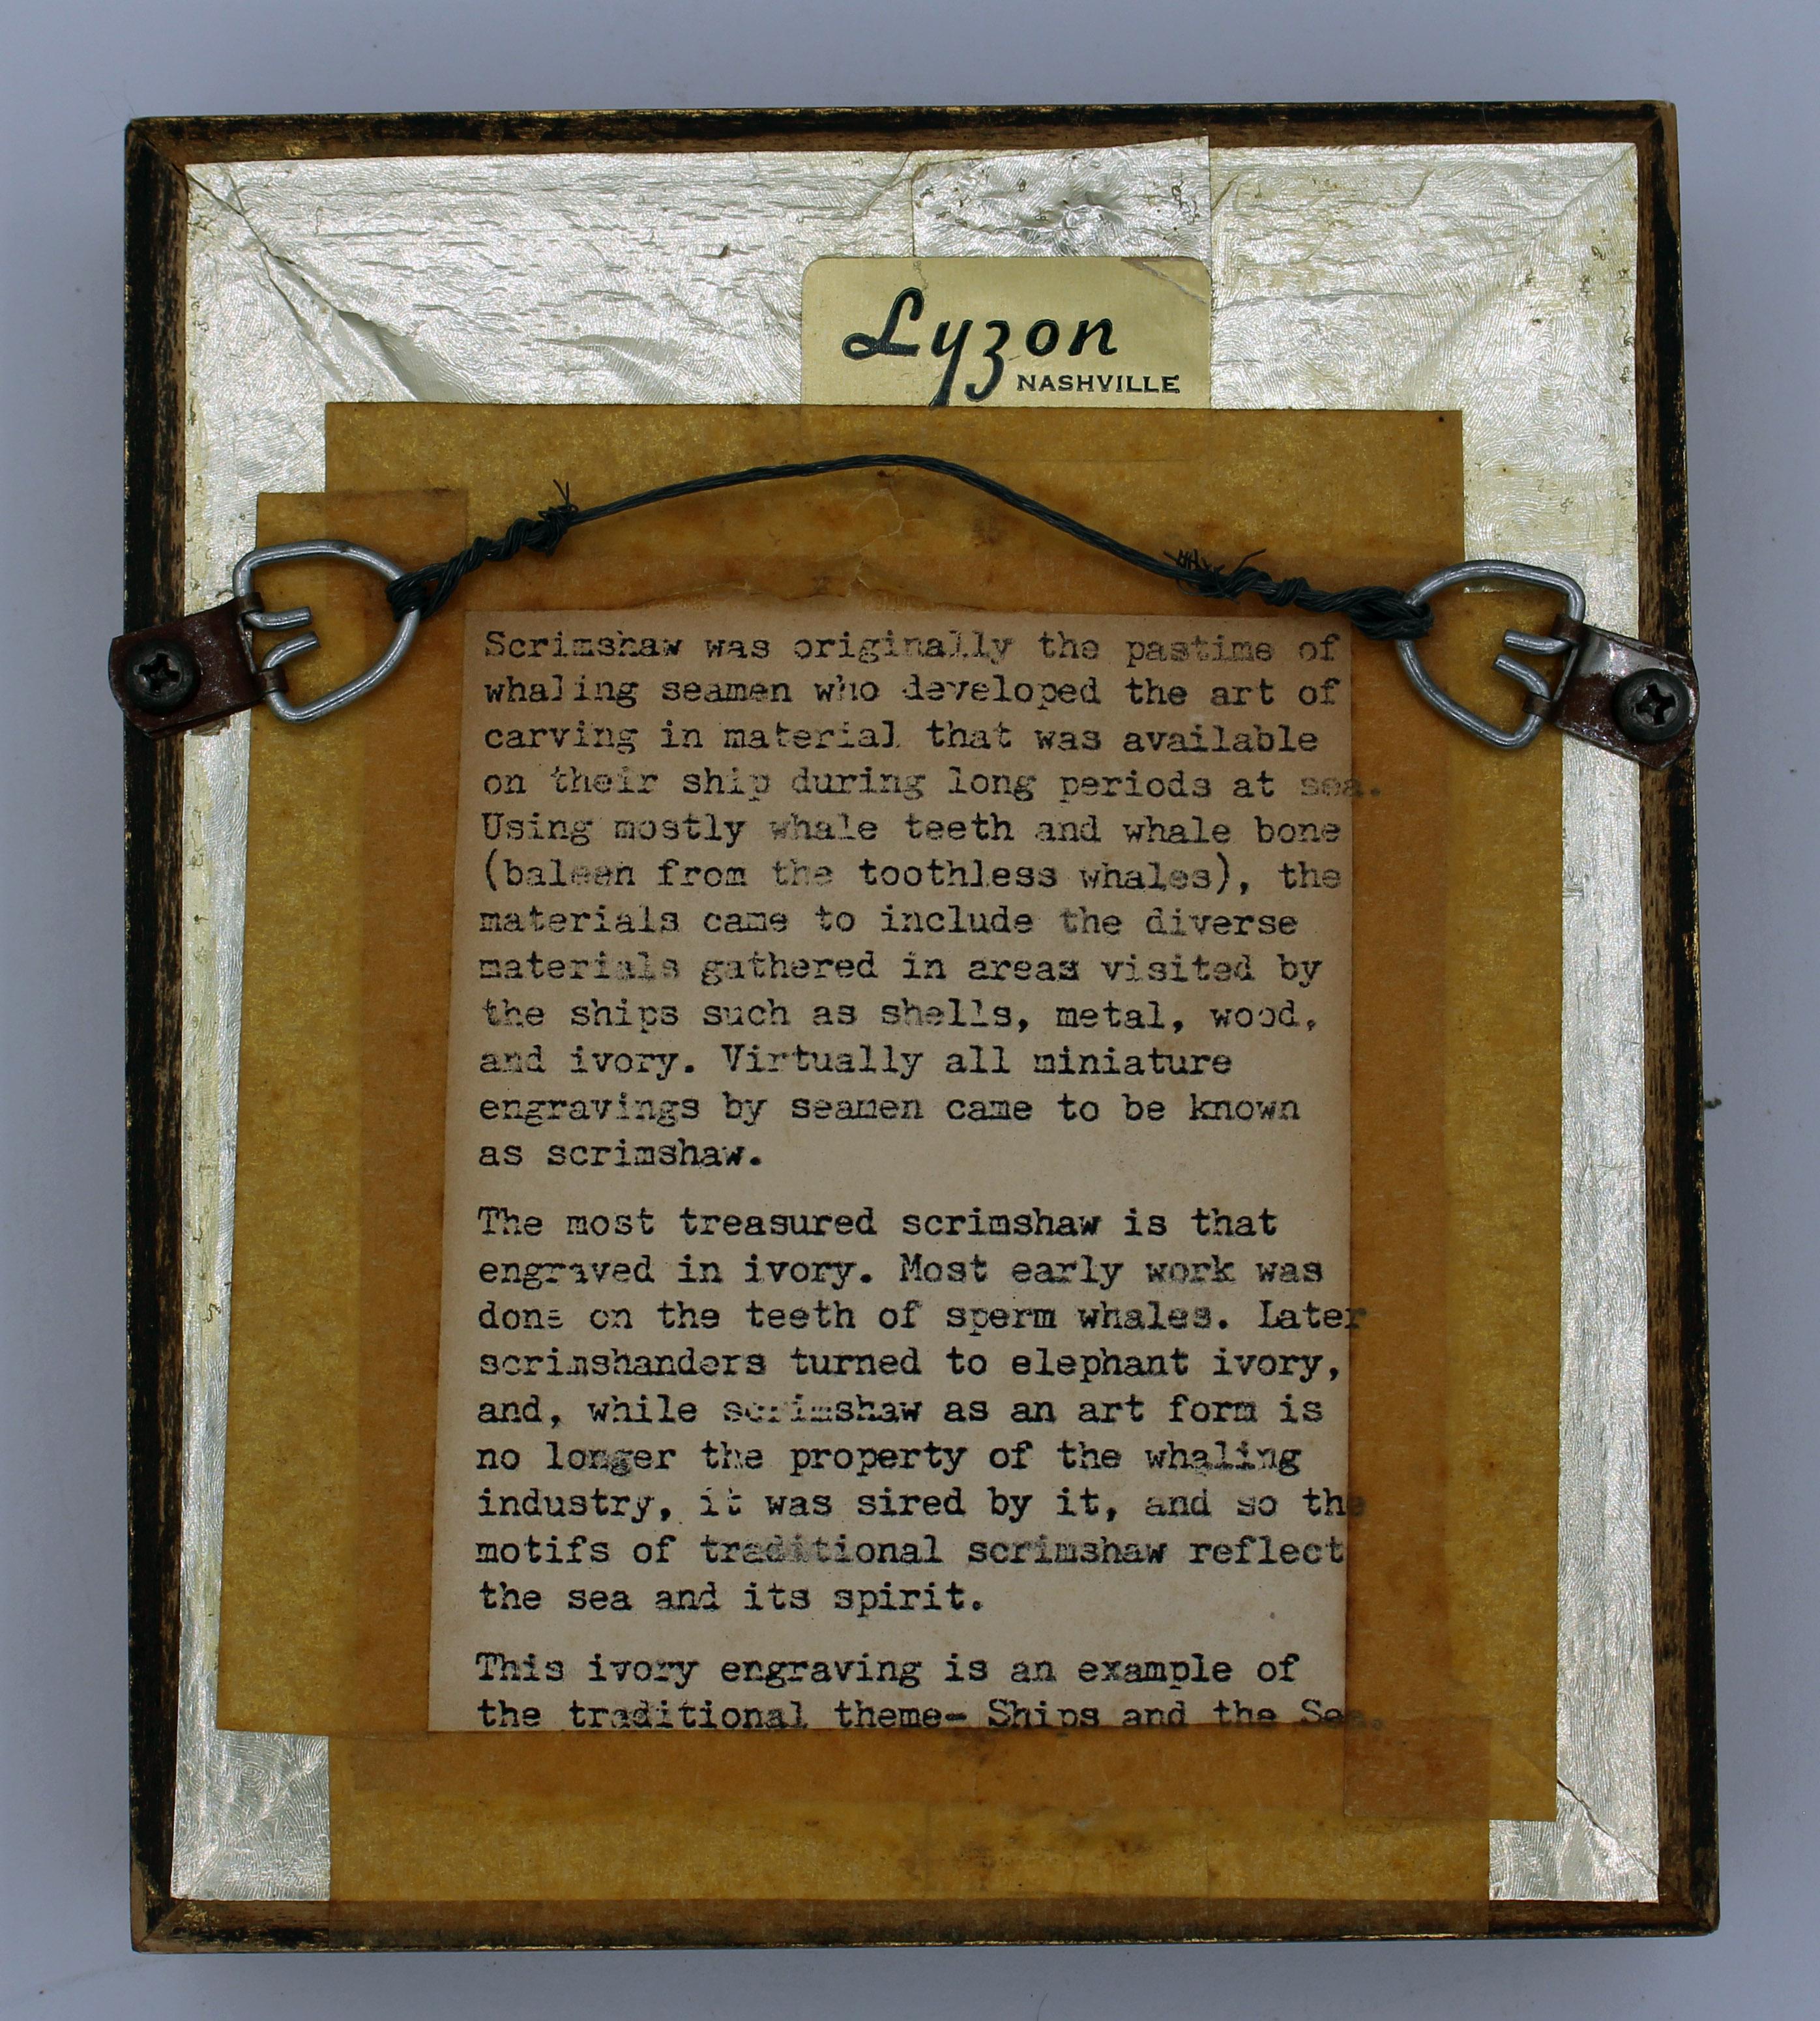 Lyzon
NASHVILLE
Scrimshaw was originally the pastime of
whaling seamen who developed the art of
carving in material that was available
on their ship during long periods at sea.
Using mostly whale teeth and whale bone
(baleen from the toothless whales), the
materials came to include the diverse
materials gathered in areas visited by
the ships such as shells, metal, wood,
and ivory. Virtually all miniature
engravings by seamen came to be known
as scrimshaw.
The most treasured scrimshaw is that
engraved in ivory. Most early work was
done on the teeth of sperm whales. Later
scrimshanders turned to elephant ivory,
and, while scrimshaw as an art form is
no longer the property of the whaling
industry, it was sired by it, and so the
motifs of traditional scrimshaw reflect
the sea and its spirit.
This ivory engraving is an example of
the traditional theme- Ships and the Sea.